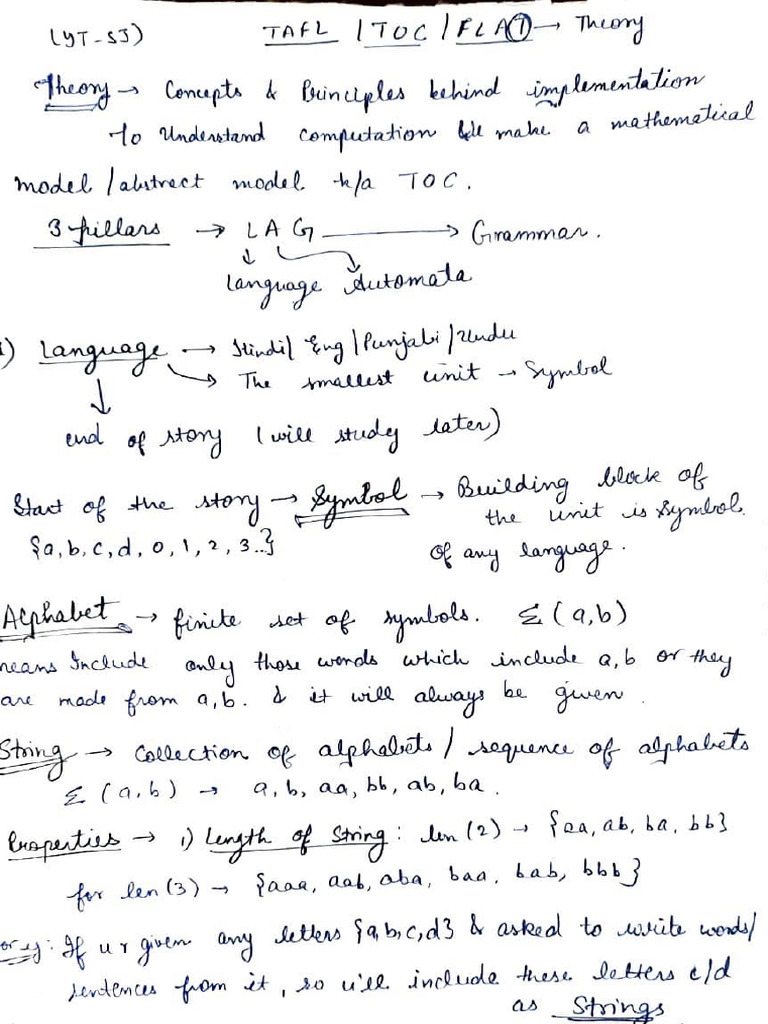 (YT-SJ) TAFL / TOC / FLAT → Theory
Theory → Concepts & Principles behind implementation
to Understand computation we make a mathematical
model / abstract model k/a TOC.
3 pillars → L A G → Grammar.
↓
Language Automata
1) Language → Hindi/ Eng / Punjabi / Urdu
↓ → The smallest unit → Symbol
end of story (will study later)
Start of the story → Symbol → Building block of
the unit is Symbol
{a, b, c, d, 0, 1, 2, 3..} of any language.
Alphabet → finite set of symbols. Σ (a,b)
means Include only those words which include a,b or they
are made from a,b. & it will always be given.
String → Collection of alphabets / sequence of alphabets
Σ (a,b) → a, b, aa, bb, ab, ba.
Properties → 1) Length of String: len (2) → {aa, ab, ba, bb}
for len (3) → {aaa, aab, aba, baa, bab, bbb}
or eg: If u r given any letters {a,b,c,d} & asked to write words/
sentences from it, so u'll include these letters c/d
as Strings